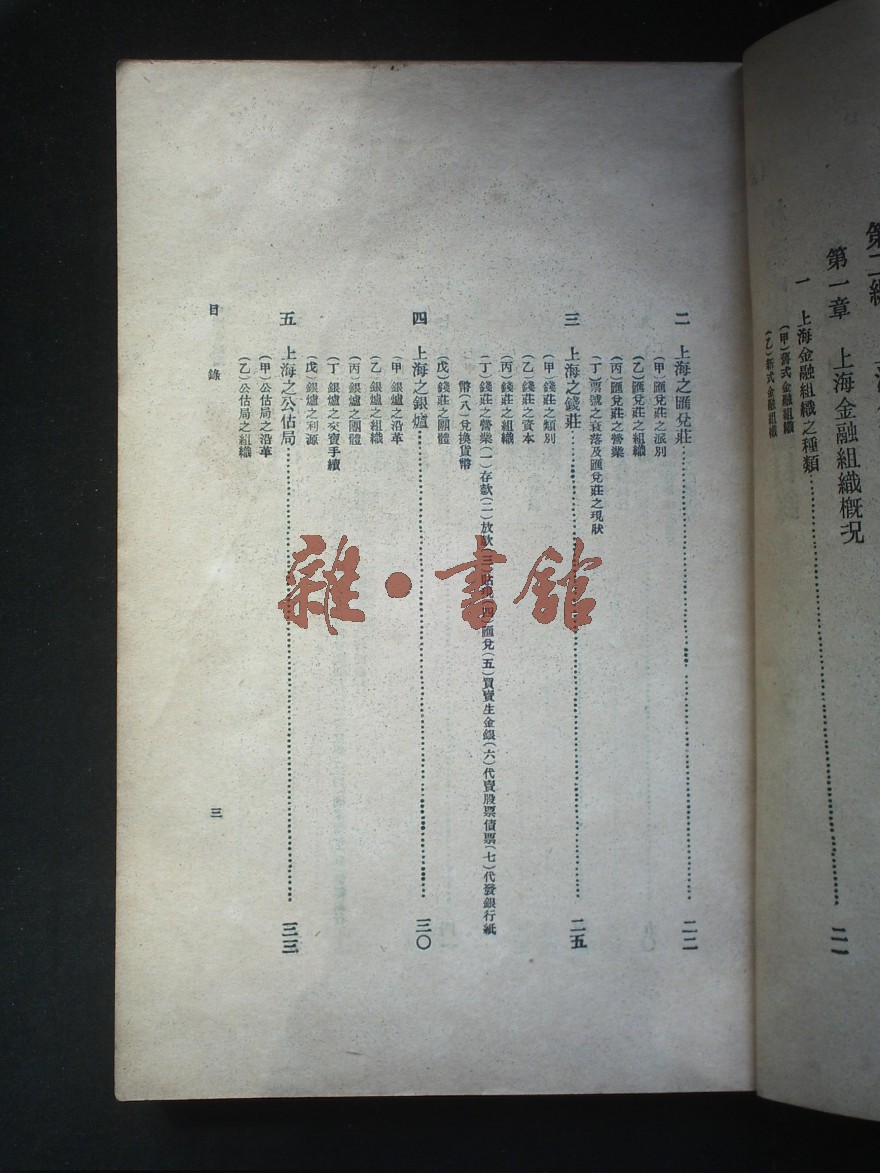 第二編
第一章　上海金融組織概況
一　上海金融組織之種類……二一
（甲）舊式金融組織
（乙）新式金融組織
二　上海之匯兌莊……二二
（甲）匯兌莊之派別
（乙）匯兌莊之組織
（丙）匯兌莊之營業
（丁）票號之衰落及匯兌莊之現狀
三　上海之錢莊……二五
（甲）錢莊之類別
（乙）錢莊之資本
（丙）錢莊之組織
（丁）錢莊之營業（一）存款（二）放款（三）貼現（四）匯兌（五）買賣生金銀（六）代賣股票債票（七）代發銀行紙
幣（八）兌換貨幣
（戊）錢莊之團體
四　上海之銀爐……三〇
（甲）銀爐之沿革
（乙）銀爐之組織
（丙）銀爐之團體
（丁）銀爐之交寶手續
（戊）銀爐之利源
五　上海之公估局……三三
（甲）公估局之沿革
（乙）公估局之組織
目錄　三
雜·書館